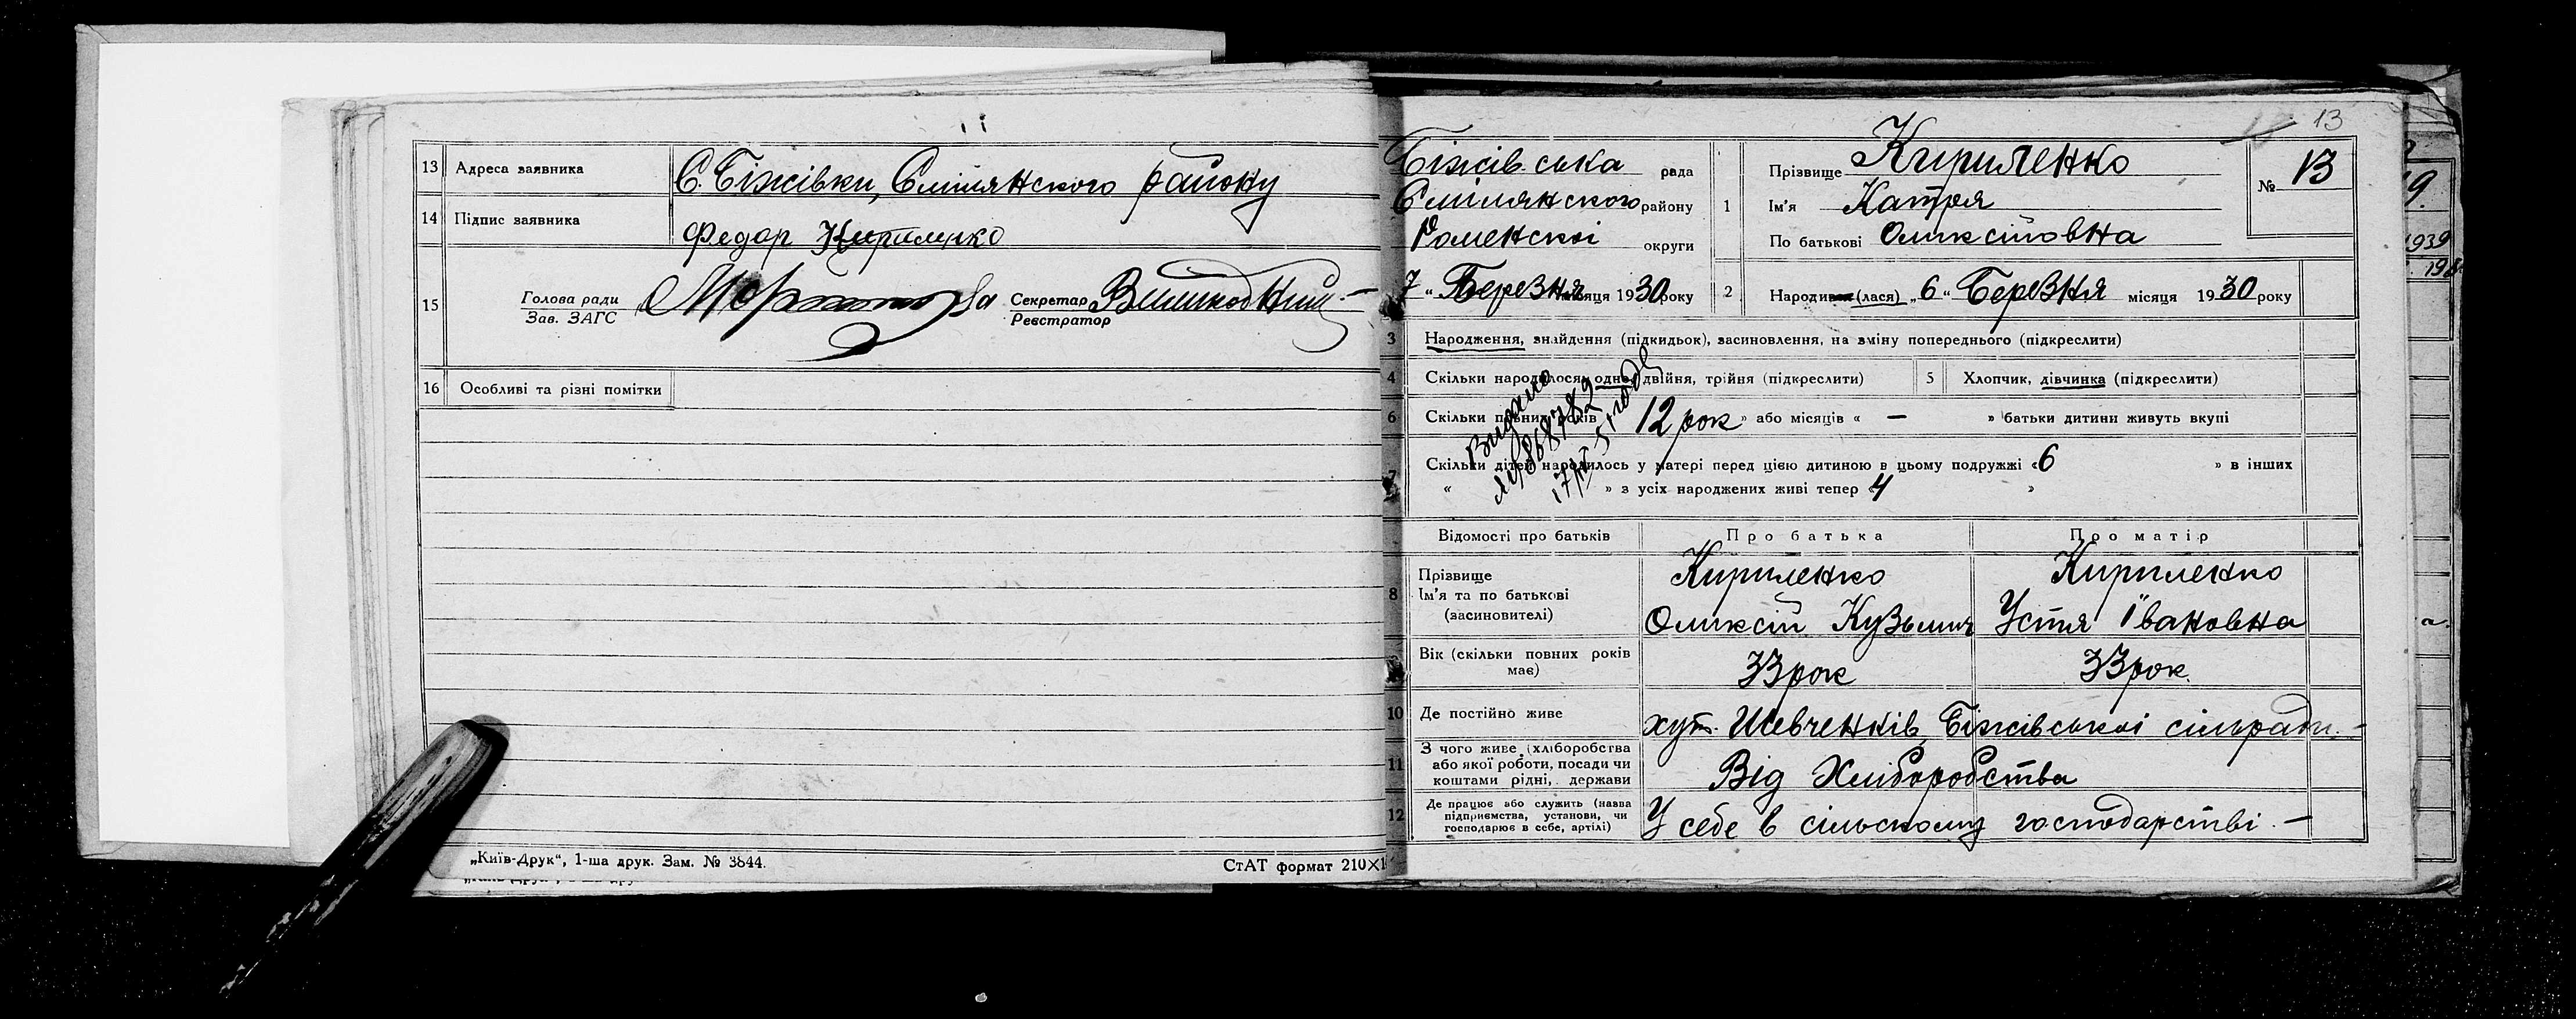 13 Адреса заявника С. Біжівки, Смілянского району
14 Підпис заявника Федор Кириленко
15 Голова ради
Зав. ЗАГС
Секретар
Реєстратор
16 Особливі та різні помітки
„Київ-Друк“, 1-ша друк. Зам. № 3844.
СтАТ формат 210×1
13
Біжівська рада
Смілянского району
Роменскоі округи
7 “ Березня місяця 1930 року
1 Прізвище Кириленко
Ім’я Катря
По батькові Оликсіївна
№ 13
2 Народився (лася) „ 6 “ Березня місяця 1930 року
3 Народження, знайдення (підкидьок), засиновлення, на зміну попереднього (підкреслити)
4 Скільки народилося: одно, двійня, трійня (підкреслити)
5 Хлопчик, дівчинка (підкреслити)
6 Скільки повних років 12 рок » або місяців « — » батьки дитини живуть вкупі
7 Скільки дітей народилось у матері перед цією дитиною в цьому подружжі « 6 » в інших
« » з усіх народжених живі тепер « 4 »
Видано
868782
Відомості про батьків Про батька Про матір
8 Прізвище Кириленко Кириленко
Ім’я та по батькові
(засиновителі) Оликсій Кузьмич Устя Івановна
Вік (скільки повних років
має) 33 рок 33 рок.
10 Де постійно живе хут. Шевченків, Біжівськоі сільради. –
11 З чого живе (хліборобства
або якої роботи, посади чи
коштами рідні, держави Від Хліборобства
12 Де працює або служить (назва
підприємства, установи, чи
господарює в себе, артілі) У себе в сільскому господарстві. –
1939